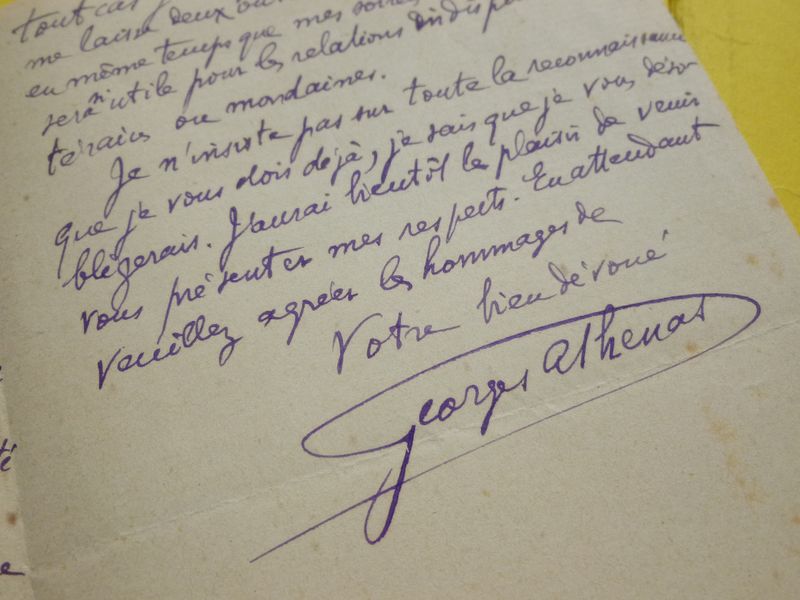 tout cas j
me laisse deux ou
en même temps que mes soirées
sera utile pour les relations indisp
téraires ou mondaines.
Je n'insiste pas sur toute la reconnaissance
que je vous dois déjà, je sais que je vous déso-
bligerais. J'aurai bientôt le plaisir de venir
vous présenter mes respects. En attendant
veuillez agréer les hommages de
Votre bien dévoué
Georges Athenas
té
e